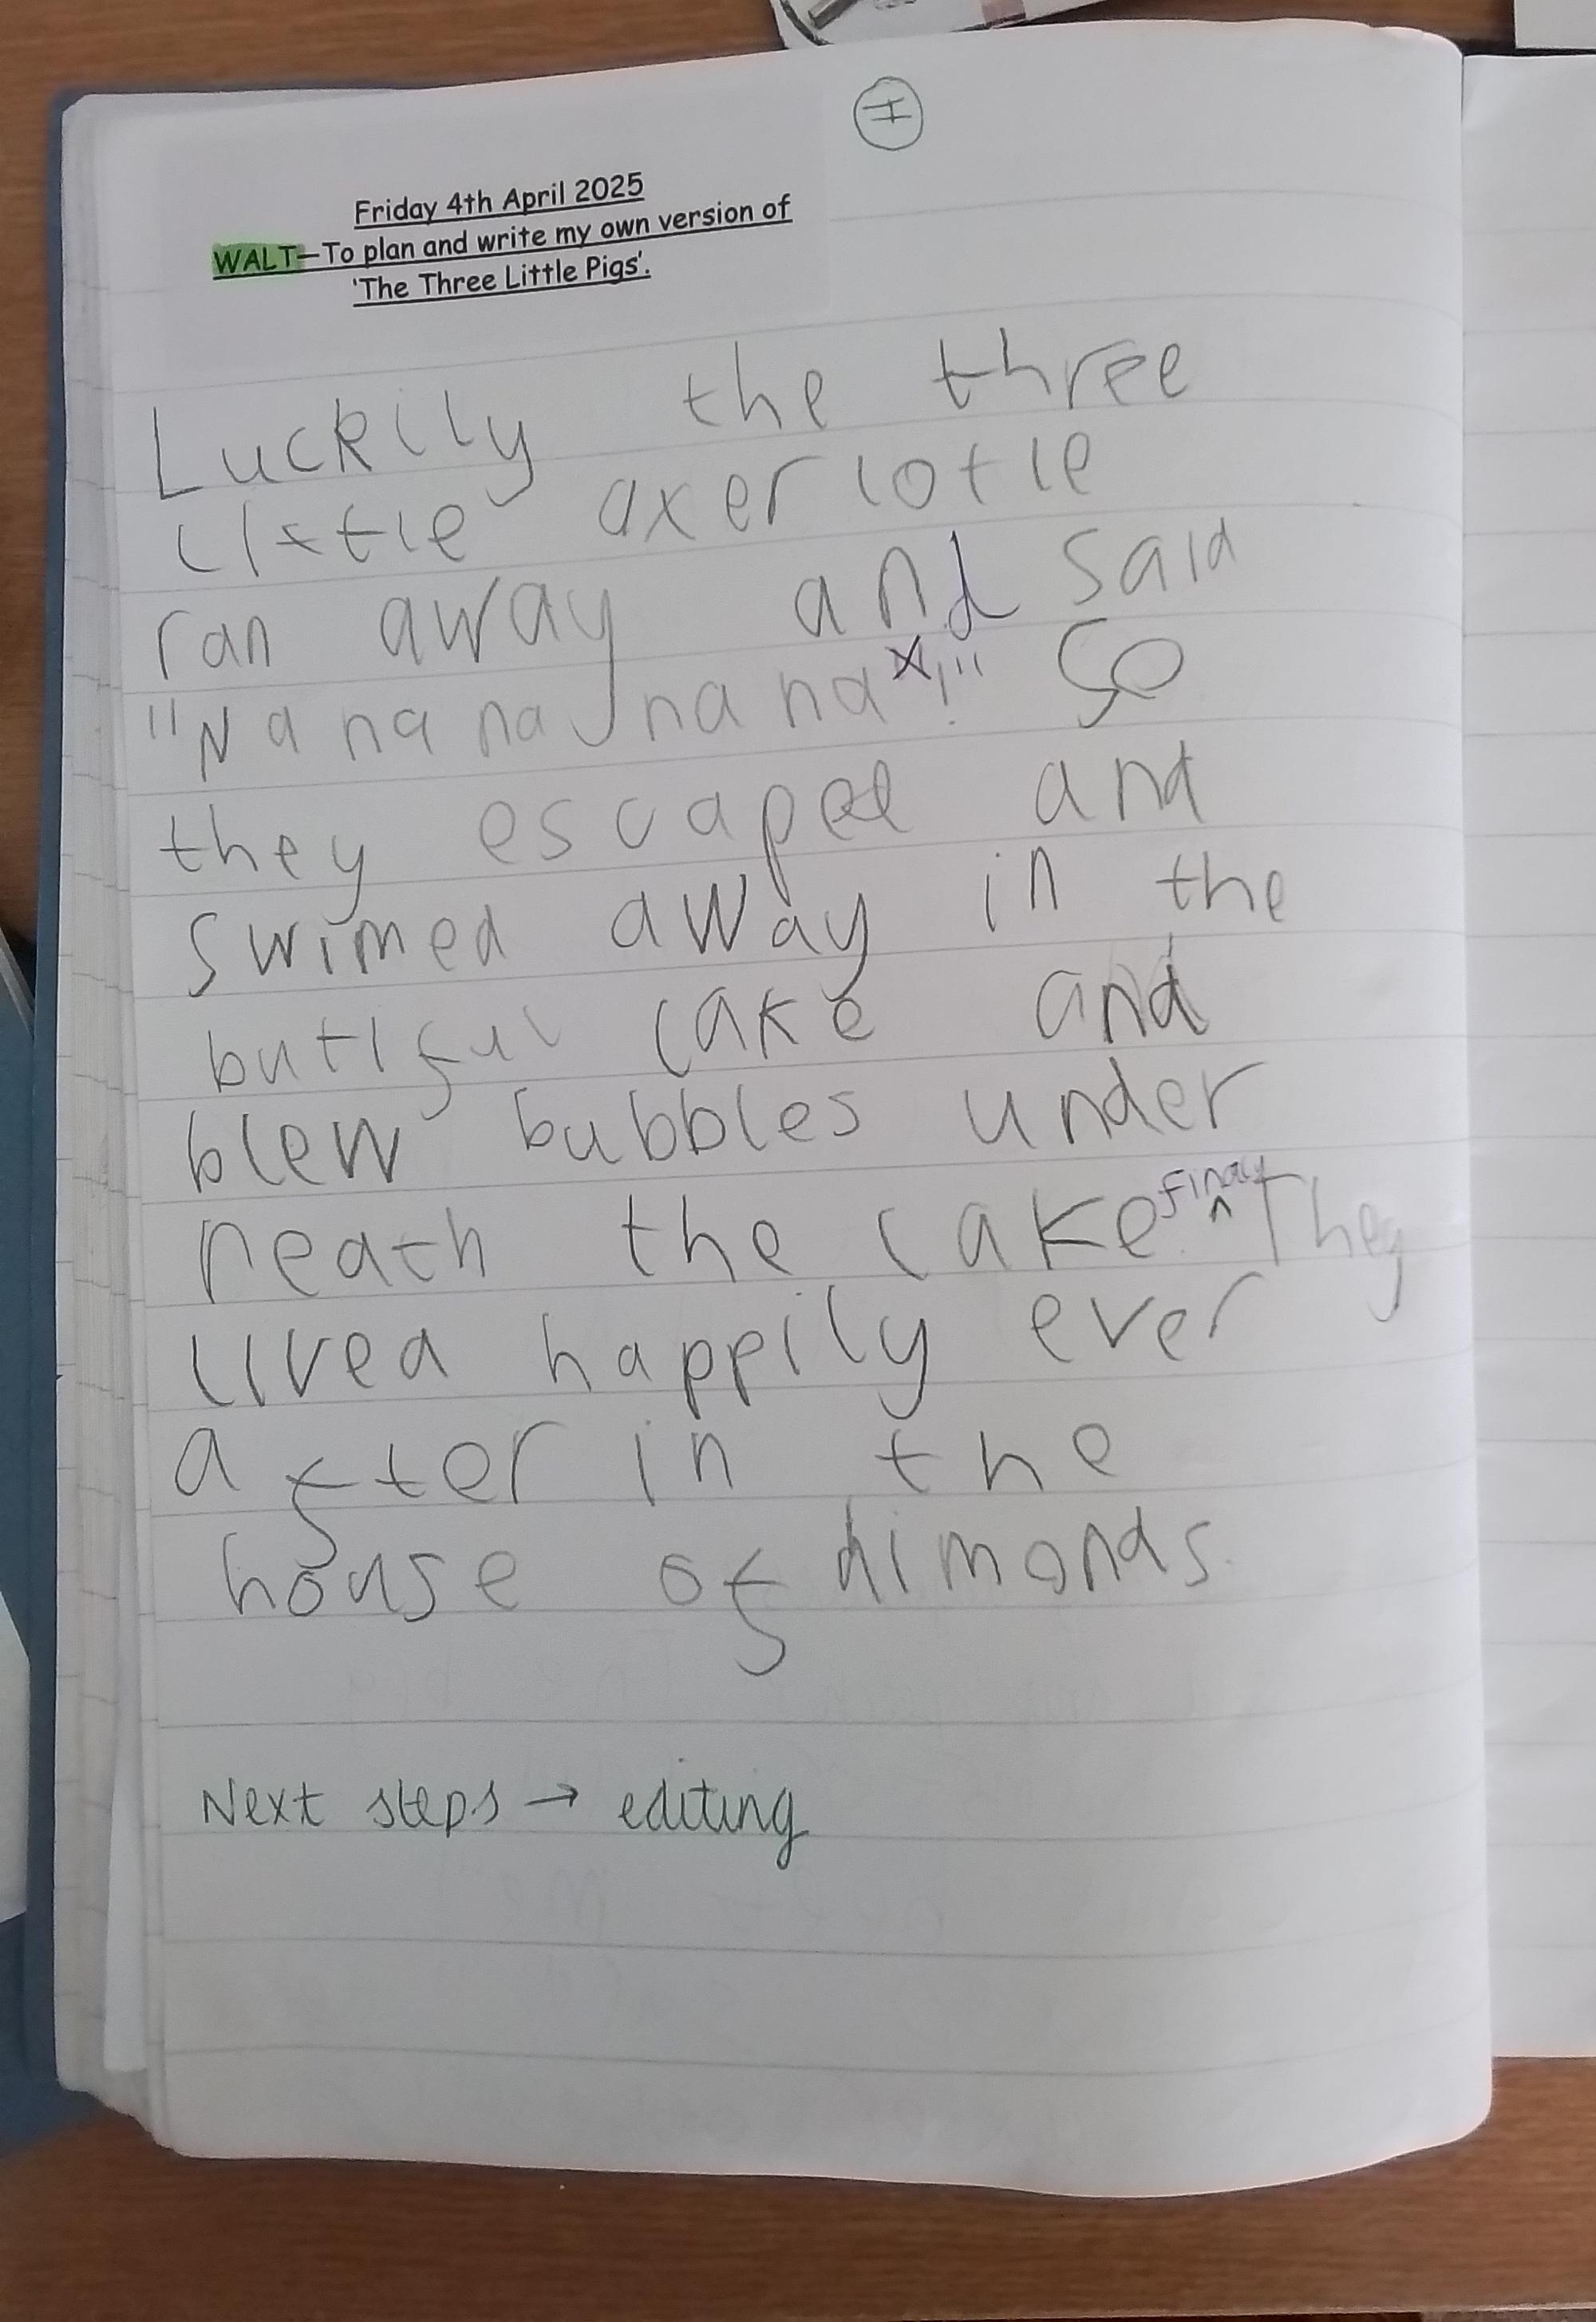 I
Friday 4th April 2025
WALT—To plan and write my own version of
'The Three Little Pigs'.
Luckily the three
little axerlotle
ran away and said
"Na na na na na x!" So
they escaped and
swimed away in the
butiful lake and
blew bubbles under
neath the lake finaly ^ They
lived happily ever
after in the
house of dimonds.
Next steps → editing